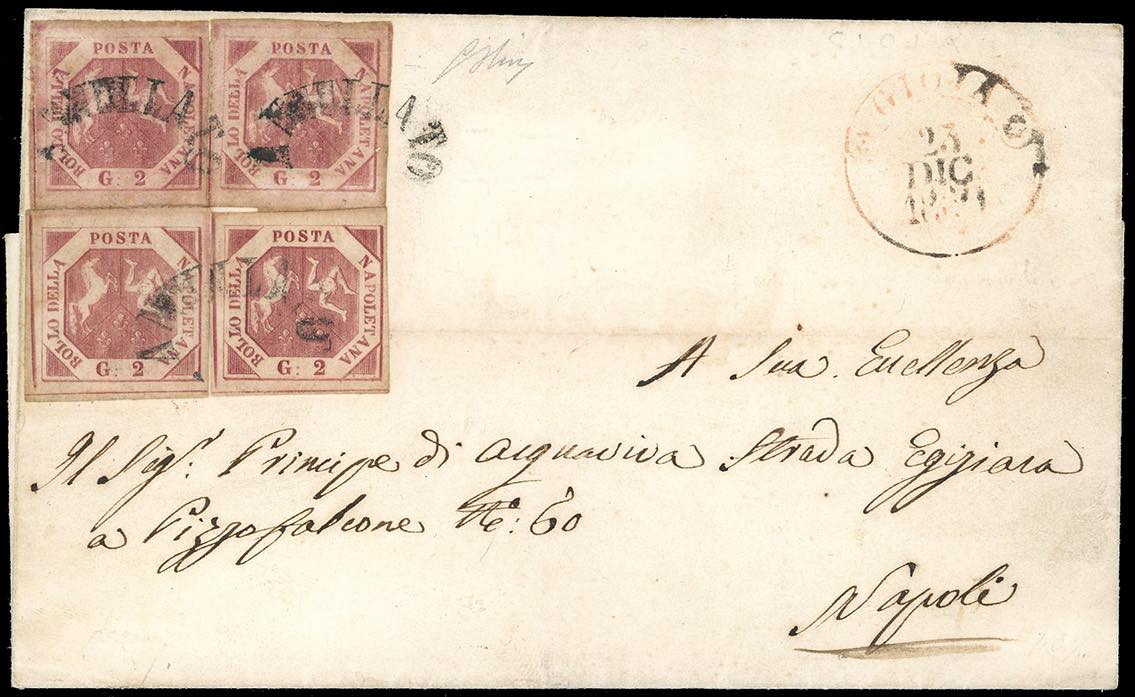 POSTA
BOLLO DELLA
NAPOLETANA
G: 2
POSTA
BOLLO DELLA
NAPOLETANA
G: 2
ANNULLATO
ANNULLATO
POSTA
BOLLO DELLA
NAPOLETANA
G: 2
POSTA
BOLLO DELLA
NAPOLETANA
G: 2
ANNULLATO
GIOIA
23
DIC
A Sua Eccellenza
Il Sigr. Principe di Acquaviva Strada Egiziaca
a Pizzofalcone No: 60
Napoli